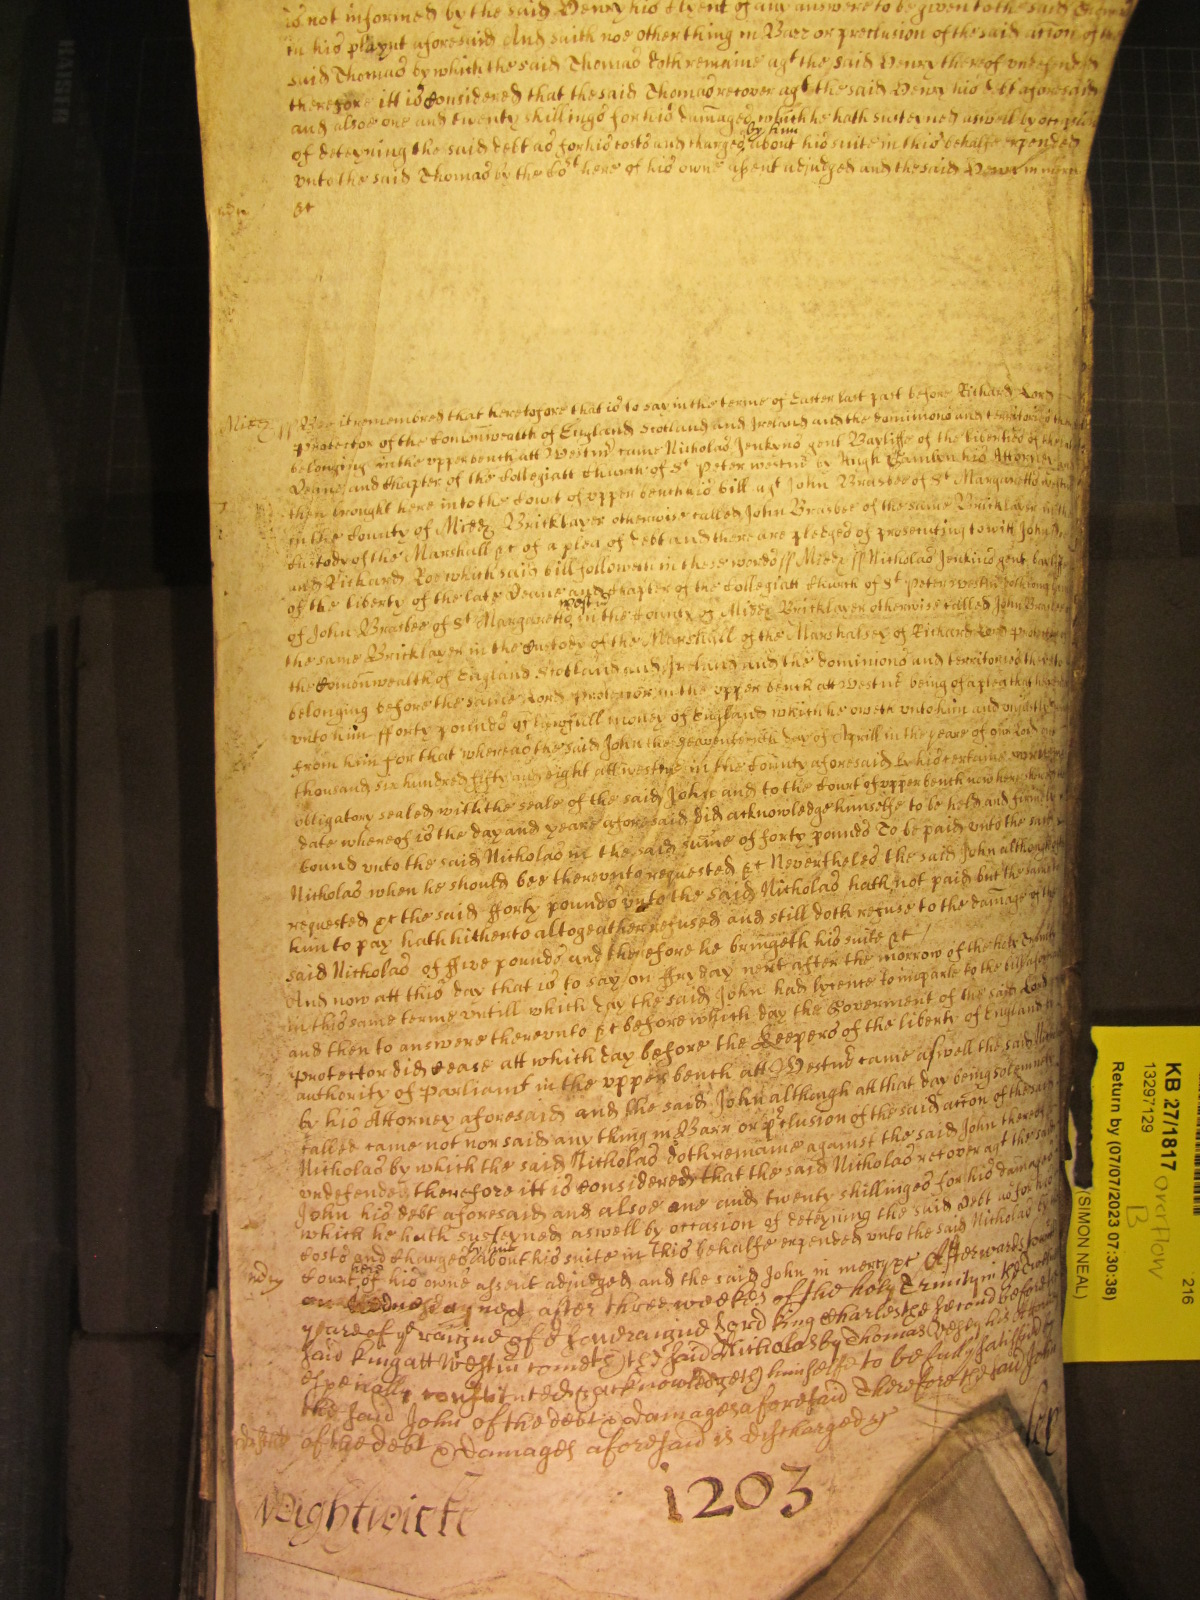 is not informed by the said Henry his Clyent of any answere to be given to the said Thomas
in his playnt aforesaid And saith noe other thing in Barr or preclusion of the said accon of the
said Thomas by which the said Thomas doth remaine agt the said Henry thereof undefended
therefore itt is Considered that the said Thomas recover agt the said Henry his debt aforesaid
and alsoe one and twenty shillings for his damages which he hath susteyned aswell by occasion
of deteyning the said debt as for his costs and charges by him about his suite in this behalfe expended
unto the said Thomas by the Cort here of his owne assent adjudged and the said Henry in mercy
&c
Midd ss Bee it remembred that heretofore that is to say in the terme of Easter last past before Richard Lord
Protector of the Comonwealth of England Scotland and Ireland and the dominions and territories there
belonging in the upper bench att Westmr came Nicholas Jenkyns gent Bayliffe of the liberties of the late
Deane and Chapter of the Collegiatt Church of St Peter Westmr by Hugh his Attorney and
then brought here into the Court of upper bench his bill agt John Brasbee of St Margaretts Westmr
in the County of Midd Bricklayer otherwise called John Brasbee of the same Bricklayer in the
Custody of the Marshall &c of a plea of debt and there are pledges of prosecuting to witt John Doe
and Richard Roe which said bill followeth in these words ss Midd ss Nicholas Jenkins gent bayliffe
of the liberty of the late Deane and Chapter of the Collegiatt Church of St Peter Westmr complaines
of John Brasbee of St Margaretts Westmr in the County of Midd Bricklayer otherwise called John Brasbee of
the same Bricklayer in the Custody of the Marshall of the Marshalsey of Richard Lord Protector of
the Comonwealth of England Scotland and Ireland and the dominions and territories thereto
belonging before the same Lord Protector in the upper bench att Westmr being of a plea that he
unto him fforty pounds of lawfull money of England which he oweth unto him and unjustly
from him For that whereas the said John the seaventeenth day of Aprill in the yeare of our Lord one
thousand six hundred fifty and eight att Westmr in the County aforesaid by his certaine writeing
obligatory sealed with the seale of the said John and to the Court of upper bench now here shewed the
date whereof is the day and yeare aforesaid did acknowledge himselfe to be held and firmely
bound unto the said Nicholas in the said sume of forty pounds To be paid unto the said
Nicholas when he should bee thereunto requested &c Nevertheles the said John although
requested &c the said fforty pounds unto the said Nicholas hath not paid but the same to
him to pay hath hitherto altogeather refused and still doth refuse to the damage of the
said Nicholas of ffive pounds and therefore he bringeth his suite &c
And now att this day that is to say on ffryday next after the morrow of the holy Trinity
in this same terme untill which day the said John had lycence to imparle to the bill aforesaid
and then to answere thereunto &c before which day the Goverment of the said Lord
Protector did cease att which day before the Keepers of the liberty of England by
authority of Parliamt in the upper bench att Westmr came aswell the said Nicholas
by his Attorney aforesaid and the said John although att that day being solemnely
called came not nor said any thing in Barr or pclusion of the said accon of the said
Nicholas by which the said Nicholas doth remaine against the said John thereof
undefended therefore itt is Considered that the said Nicholas recover agt the said
John his debt aforesaid and alsoe one and twenty shillinges for his damages
which he hath susteyned aswell by occasion of deteyning the said debt as for his
costs and charges by him about his suite in this behalfe expended unto the said Nicholas by the
Court here of his owne assent adjudged and the said John in mercy &c Afterwards
on Wednesday next after three weekes of the holy Trinity in
yeare of ye raigne of ye soveraigne Lord King Charles the Second before ye
said King att Westmr cometh the said Nicholas by Thomas his Attorney
especially constituted & acknowledgeth himselfe to be fully satisfied by
the said John of the debt & damages aforesaid Therefore the said John
of the debt & damages aforesaid is discharged &c
Wightwicke
1203
KB 27/1817 overflow
B
13297129
216
Return by (07/07/2023 07:30:38)
(SIMON NEAL)
KAISER